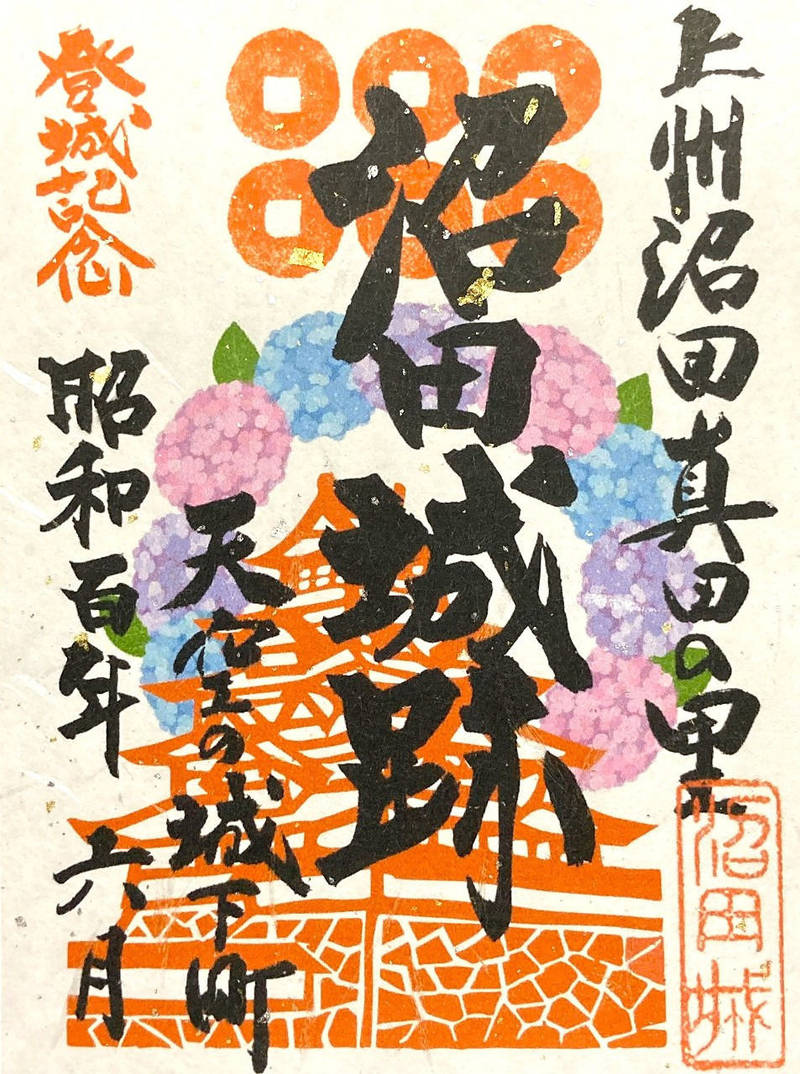 上州沼田真田の里
沼田城
沼田城跡
天空の城下町
登城記念
昭和百年
六月